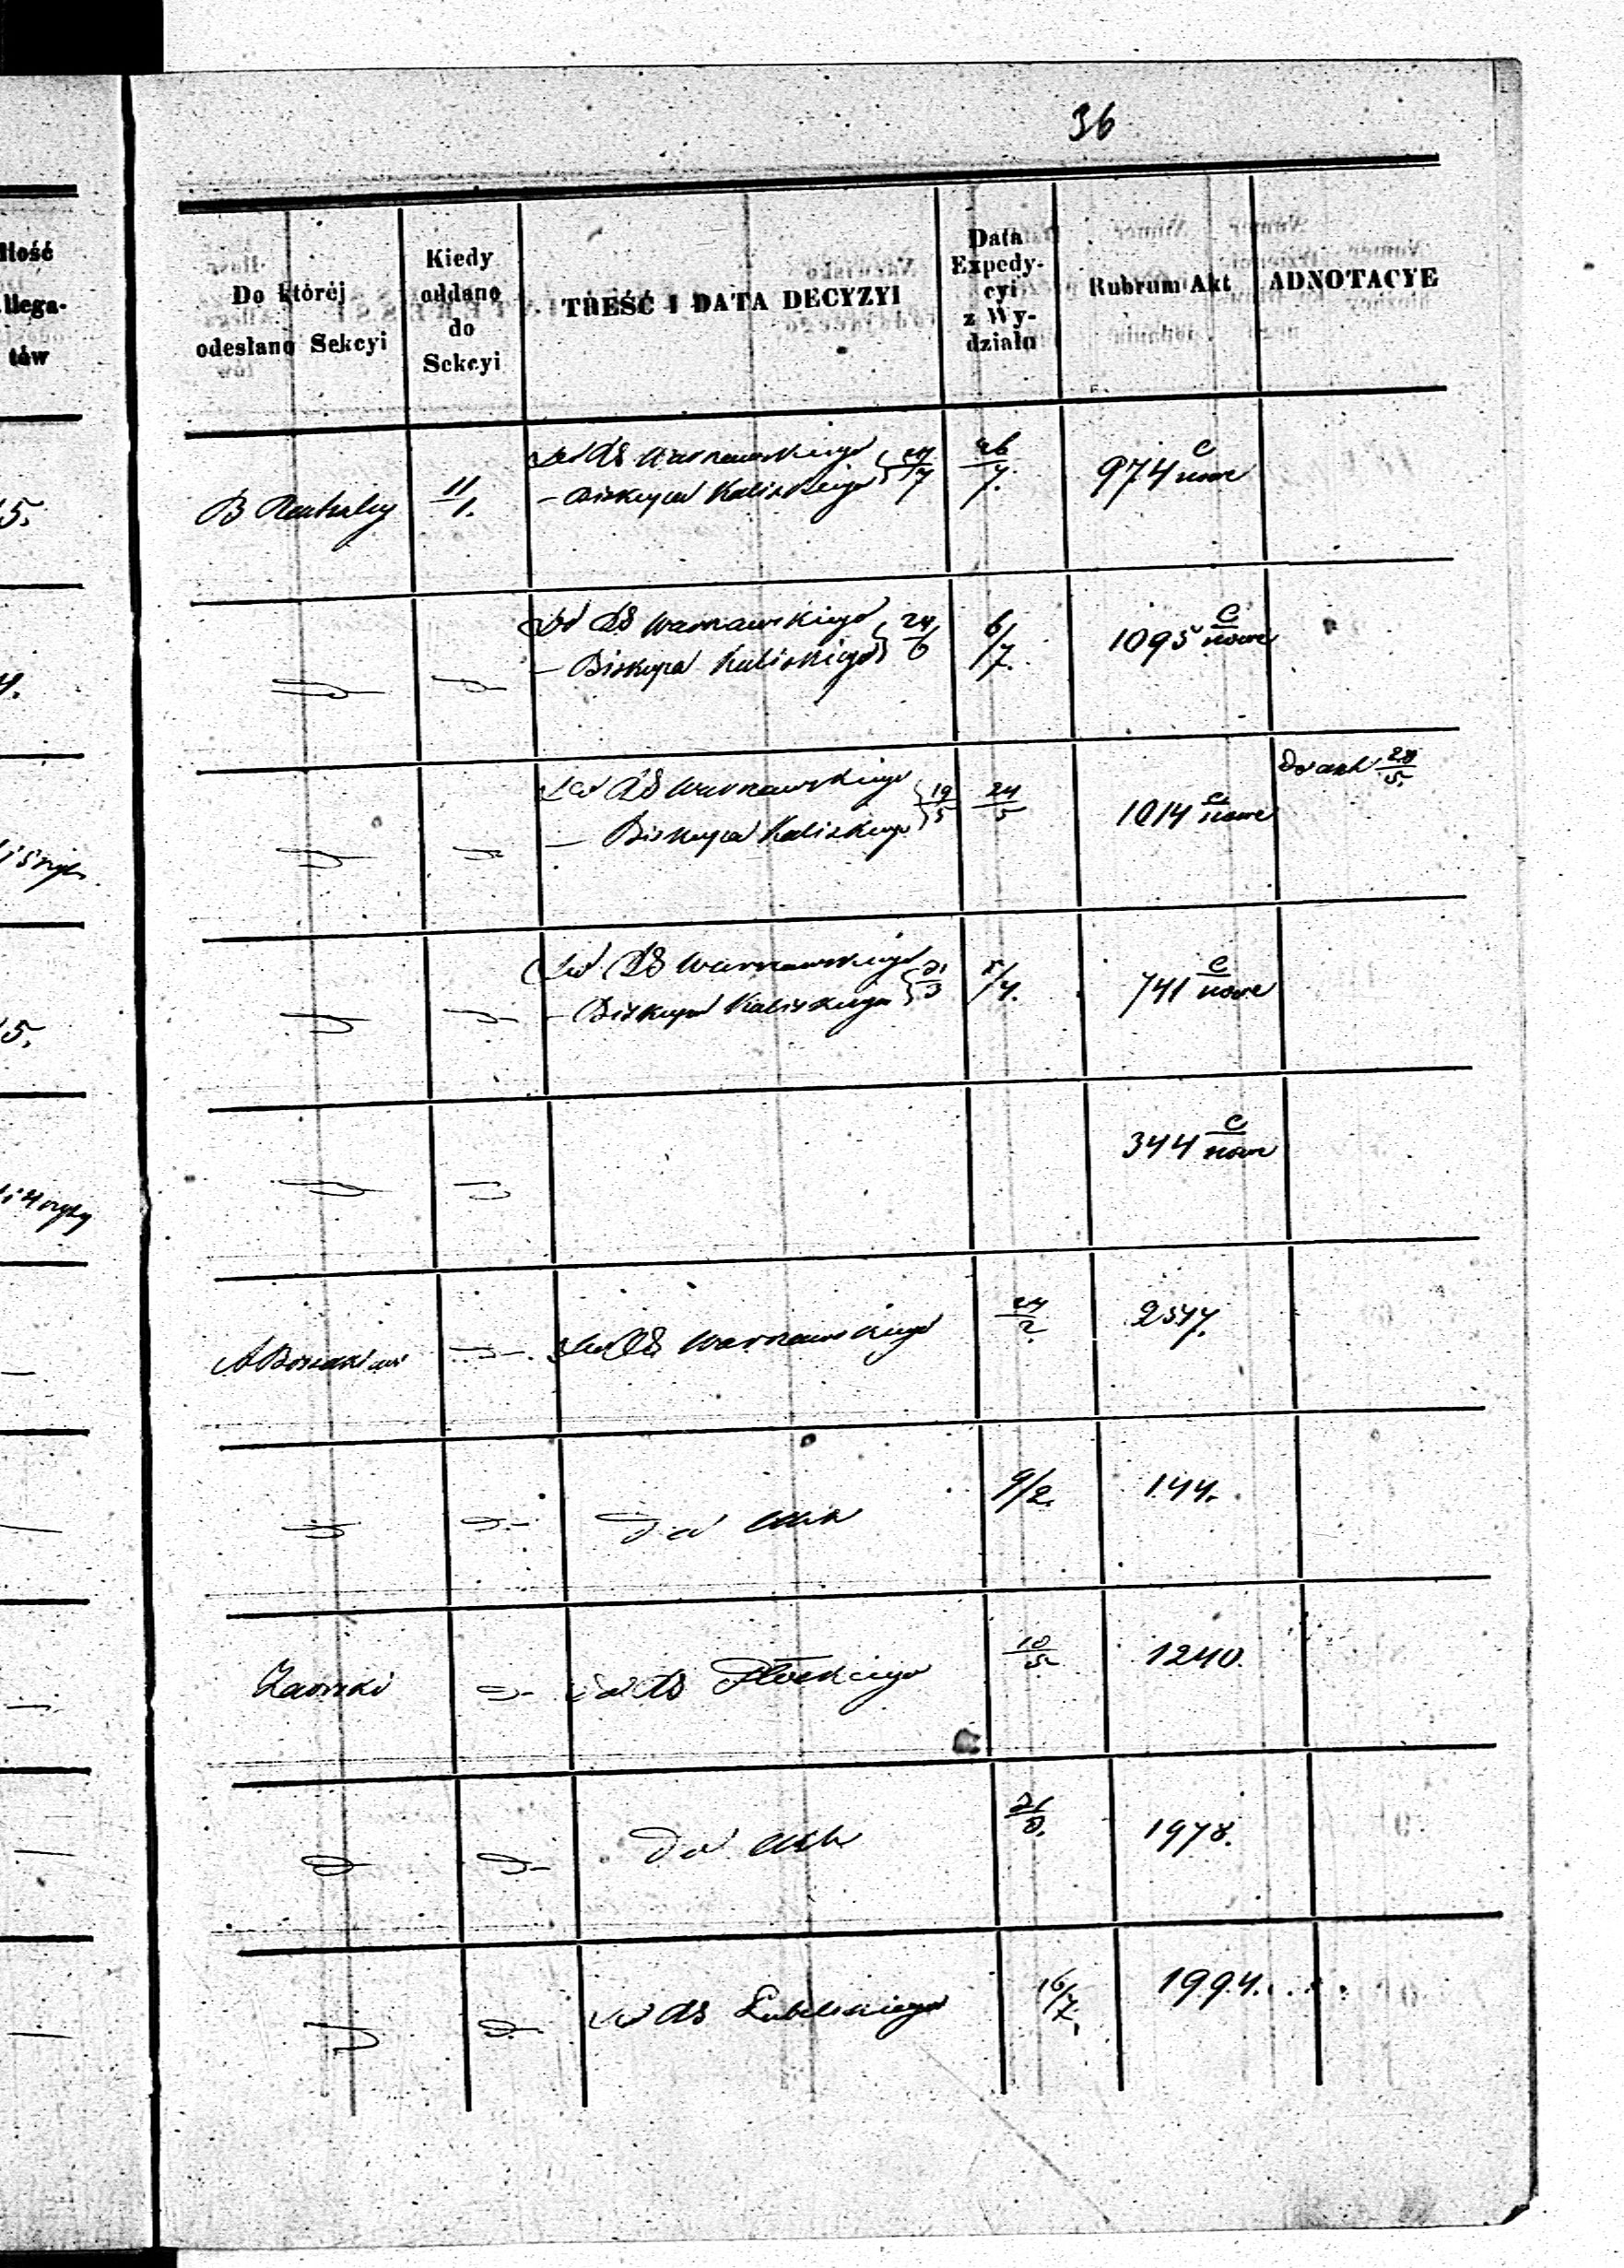 36
Ilość
llega-
tów
Do której
odesłano Sekcyi
Kiedy
oddano
do
Sekcyi
TREŚĆ I DATA DECYZYI
Data
Expedy-
cyi
z Wy-
działu
Rubrum Akt
ADNOTACYE
5.
B
11/1.
Do RG Warszawskiego
– Biskupa Kaliskiego } 24/7
26/7.
974 C/nowe
4.
Do RG Warszawskiego
– Biskupa Kaliskiego } 24/6
6/7.
1095 C/nowe
Do RG Warszawskiego
– Biskupa Kaliskiego } 19/5
24/5
1014 C/nowe
Do akt 28/5.
5.
Do RG Warszawskiego
– Biskupa Kaliskiego } 21/3
1/4.
741 C/nowe
344 C/nowe
Do RG Warszawskiego
24/2
2577.
Do akt
9/2.
144.
Zasinski
Do RG Płockiego
10/5
1240.
Do akt
21/8.
1978.
Do RG Lubelskiego
16/7.
1994.